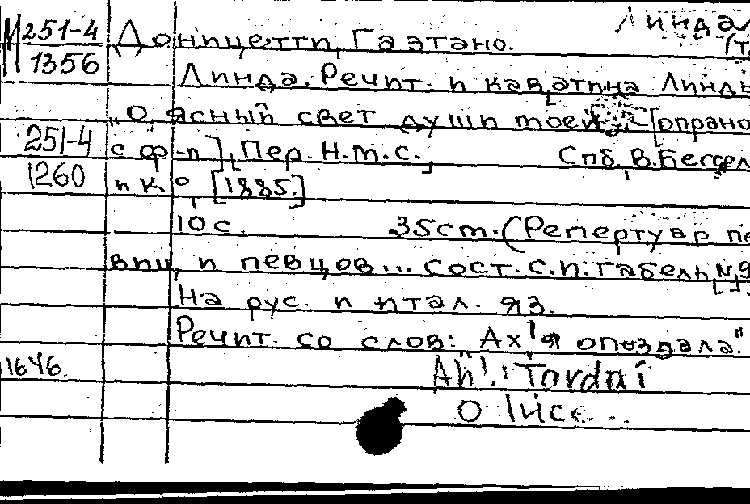 М 251-4 Доницетти, Гаэтано. Линда
1356 (т
Линда. Речит. и каватина Линды
„О ясный свет души моей." [Сопрано
251-4 с ф-п], Пер. Н.М.С., Спб, В. Бессел
1260 и Ко, [1885.]
10 с. 35 cm. (Репертуар пе
виц, и певцов... сост. С.И. Габель, №9
На рус. и итал. яз.
Речит. со слов: Ах! я опоздала"
1646. Ah!: Tardai
O luce...